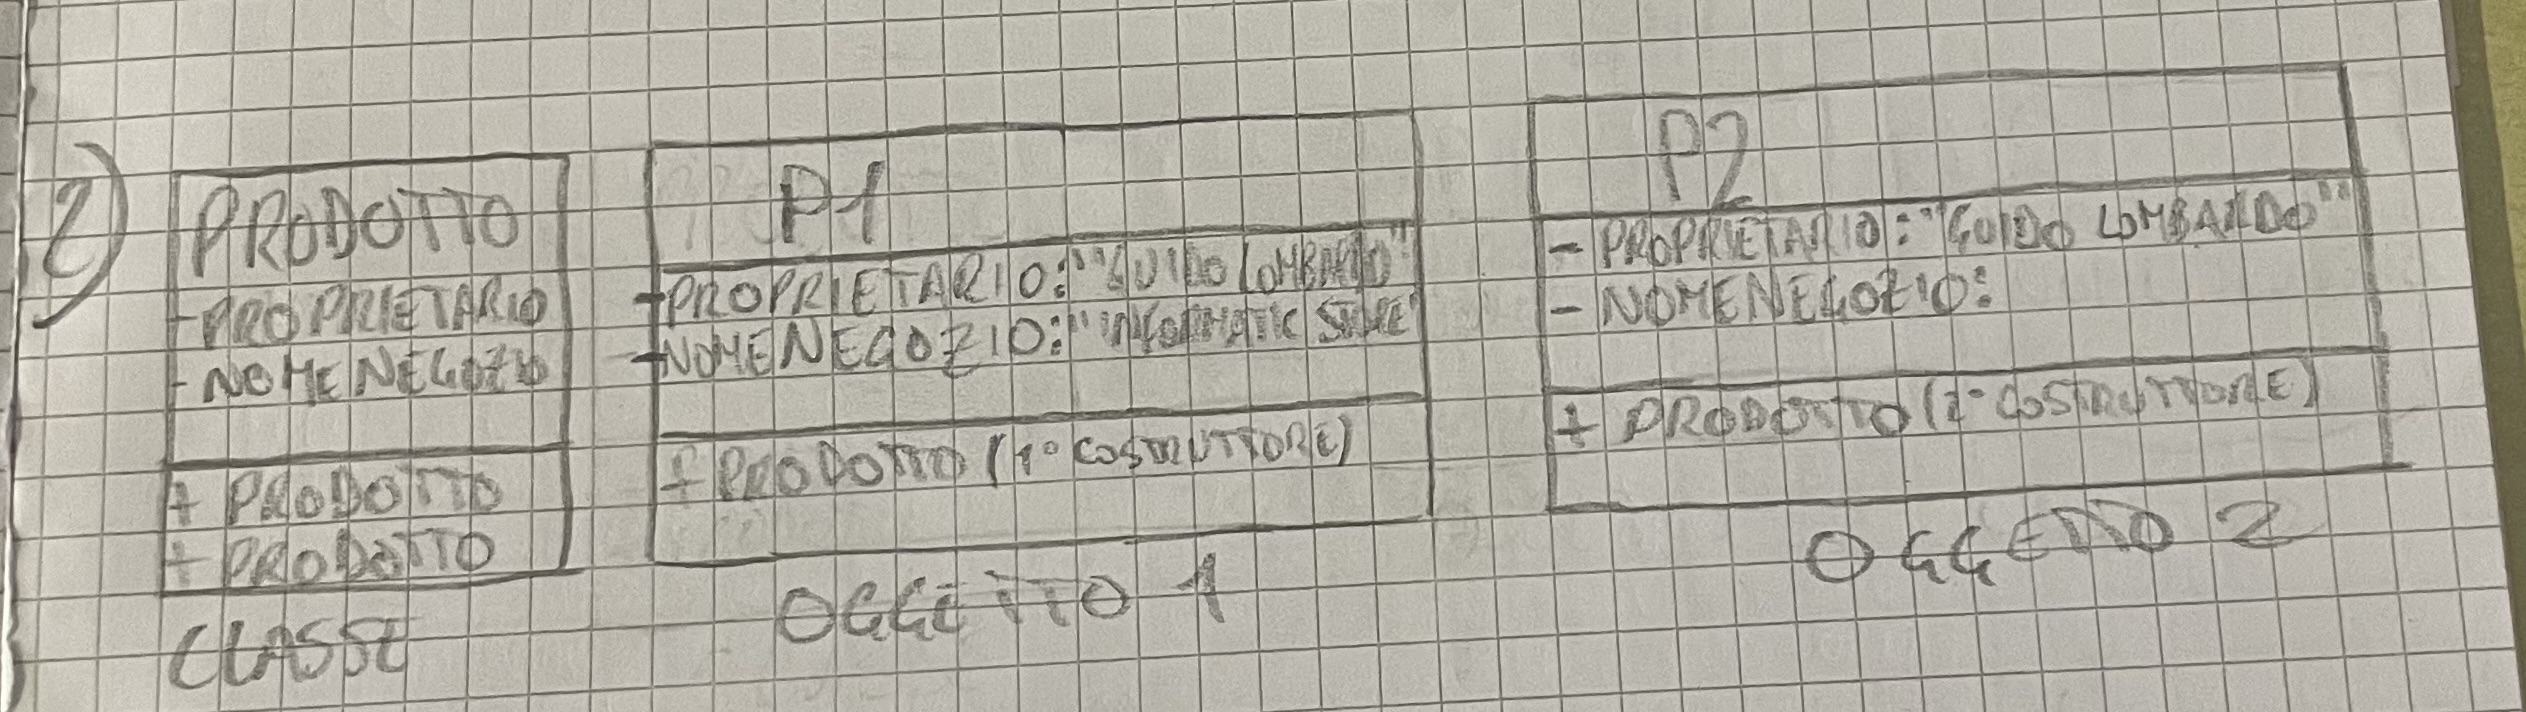 2)
PRODOTTO
- PROPRIETARIO
- NOMENEGOZIO
+ PRODOTTO
+ PRODOTTO
CLASSE
P1
- PROPRIETARIO: "GUIDO LOMBARDO"
- NOMENEGOZIO: "INFORMATIC STORE"
+ PRODOTTO (1° COSTRUTTORE)
OGGETTO 1
P2
- PROPRIETARIO: "GUIDO LOMBARDO"
- NOMENEGOZIO:
+ PRODOTTO (2° COSTRUTTORE)
OGGETTO 2